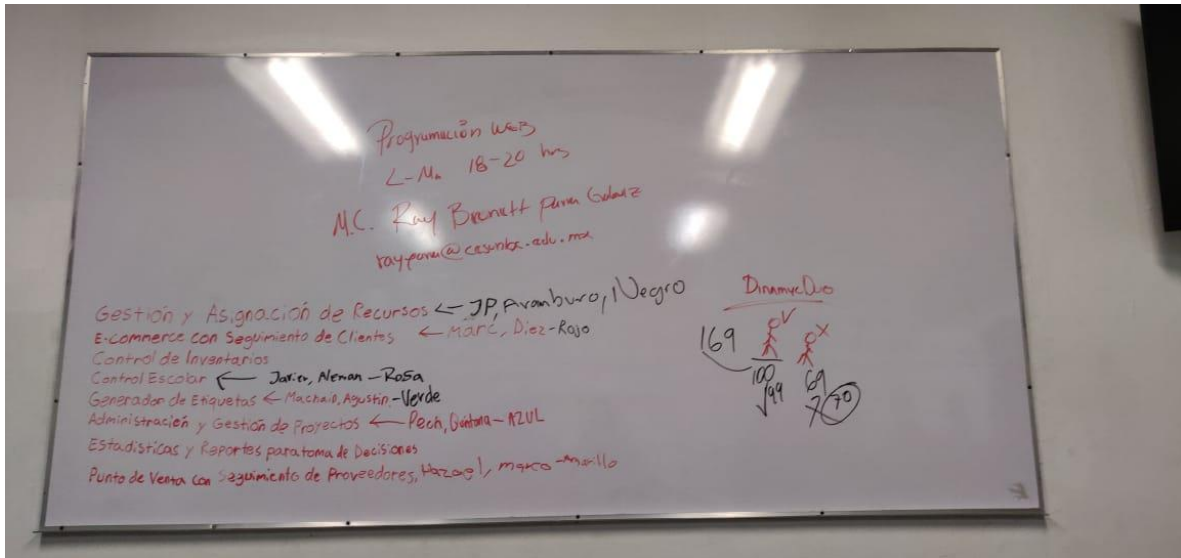 Programación WEB
L-Ma 18-20 hrs
M.C. Ray Brunett Parra Galaviz
Gestión y Asignación de Recursos ← JP, Aramburo, Negro
E-commerce con Seguimiento de Clientes ← Marc, Diez-Rojo
Control de Inventarios
Control Escolar ← Javier, Aleman - Rosa
Generador de Etiquetas ← Machaio, Agustin - Verde
Administración y Gestión de Proyectos ← Pech, Quintana - AZUL
Estadísticas y Reportes para toma de Decisiones
Punto de Venta con Seguimiento de Proveedores, Hazael, marco - Amarillo
Dinamyc Duo
169
100 69
99 70